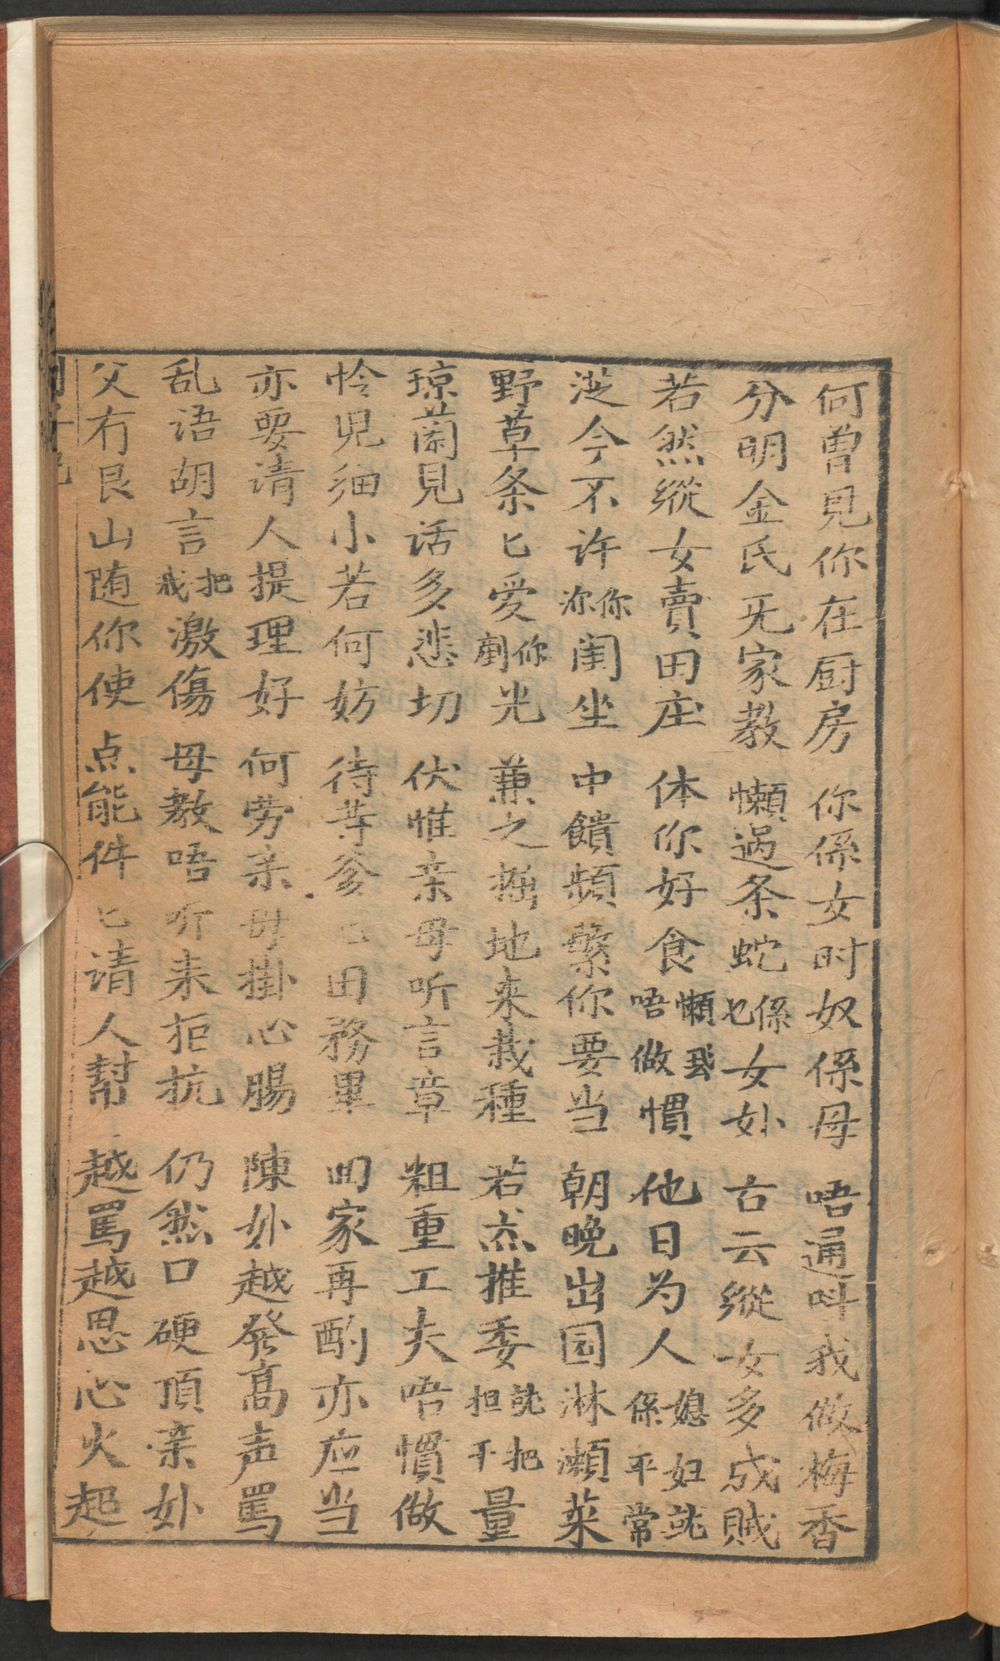 何曾見你在厨房 你係女时奴係母 唔通呌我做梅香
分明金氏旡家教 懶過条蛇係乜女妙 古云縱女多成賊
若然縱女賣田庄 体你好食懶我唔做慣 他日为人媳妇就係平常
从今不许你閨坐 中饋頻蘩你要当 朝晚出园淋瀬菜
野草条匕愛你劏光 兼之掘地来栽種 若然推委就把担干量
琼蘭見话多悲切 伏惟亲母听言章 粗重工夫唔慣做
怜児细小若何妨 待等爹匕田務畢 回家再酌亦应当
亦要请人提理好 何劳亲母掛心腸 陳妙越發高声罵
乱语胡言把我激傷 母教唔听来拒抗 仍然口硬頂亲妙
父冇艮山随你使 点能件匕请人幫 越罵越思心火起